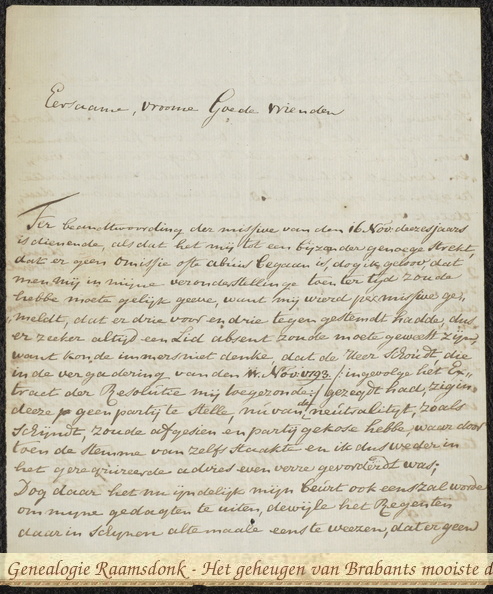 Eersaame, vroome Goede vrienden
Ter beandtwoording der missive van den 16 Nov: deezes jaars
is dienende, als dat het mij tot een bijzonder genoege strekt,
dat er geen Omissie ofte abuis begaan is, dog ik geloov dat
men mij in mijne veronderstellinge toen ter tyd zoude
hebbe moete gelijk geeve, want mij wierd per missive ge-
meldt, dat er drie voor en drie tegen gestemdt hadde, dus
er zeeker altyd een Lid absent zoude moete geweest zijn,
want konde immers niet denke, dat de Heer Schmidt die
in de vergadering van den 11. Nov: 1793. /:ingevolge het Ex-
tract der Resolutie mij toegezonde:/ gezegdt had, zig in
deeze geen party te stelle, nu van die neutralityt, zoals
schijndt, zoude afgesien en party gekose hebbe, waar door
toen de stemme van zelfs staakte en ik dus weder in
het gerequireerde advies even verre gevorderdt was;
Dog daar het nu eijndelijk mijn beurt ook eens zal worde
om mijne gedagten te uiten, dewijle het Regenten
daar in schijnen altemaale eens te weezen, dat er geen
Genealogie Raamsdonk - Het geheugen van Brabants mooiste d